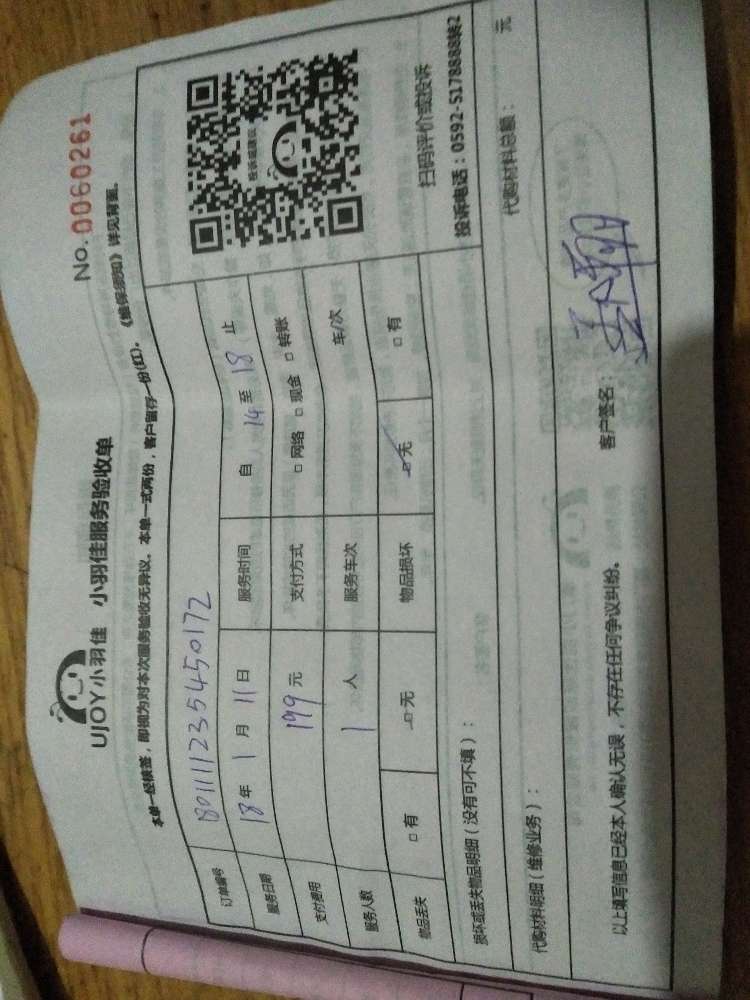 UJOY小羽佳 小羽佳服务验收单
No. 0060261
本单一经核签，即视为对本次服务验收无异议。本单一式两份，客户留存一份(红)。《售后须知》详见背面。
订单编号 80111123545017​2
服务日期 18年 1月 11日 服务时间 自 14 至 18 止
支付费用 199元 支付方式 □网络 □现金 □转账
服务人数 1 人 服务车次 车/次
物品丢失 □有 □无 物品损坏 □无 □有
投诉或建议
扫码评价或投诉
投诉电话：0592-5178888转2
损坏或丢失物品明细（没有可不填）：
代购材料明细（维修业务）： 代购材料总额： 元
以上填写信息已经本人确认无误，不存在任何争议纠纷。 客户签名：